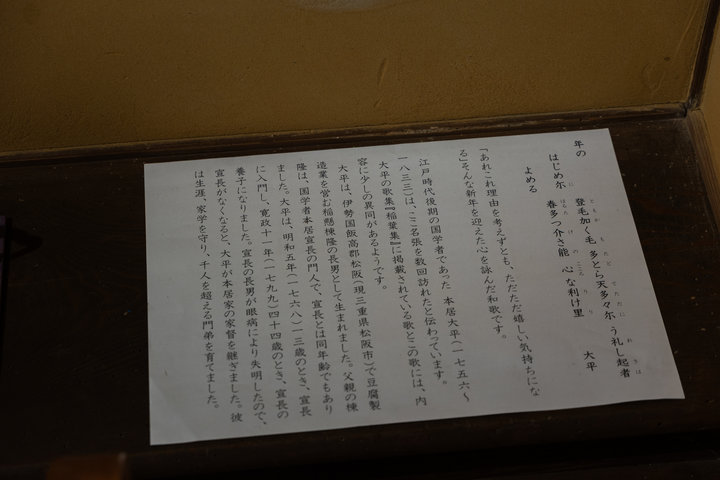 年の
はじめ尓
よめる
登毛加く毛 多とら天多々尓 う礼し起者
春多つ介さ能 心な利け里
大平
「あれこれ理由を考えずとも、ただただ嬉しい気持ちにな
る」そんな新年を迎えた心を詠んだ和歌です。
江戸時代後期の国学者であった 本居大平(一七五六〜
一八三三)は、ここ名張を数回訪れたと伝わっています。
大平の歌集『稲葉集』に掲載されている歌とこの歌には、内
容に少しの異同があるようです。
大平は、伊勢国飯高郡松阪(現三重県松阪市)で豆腐製
造業を営む稲懸棟隆の長男として生まれました。父親の棟
隆は、国学者本居宣長の門人で、宣長とは同年齢でもあり
ました。大平は、明和五年(一七六八)一三歳のとき、宣長
に入門し、寛政十一年(一七九九)四十四歳のとき、宣長の
養子になりました。宣長の長男が眼病により失明したので、
宣長がなくなると、大平が本居家の家督を継ぎました。彼
は生涯、家学を守り、千人を超える門弟を育てました。